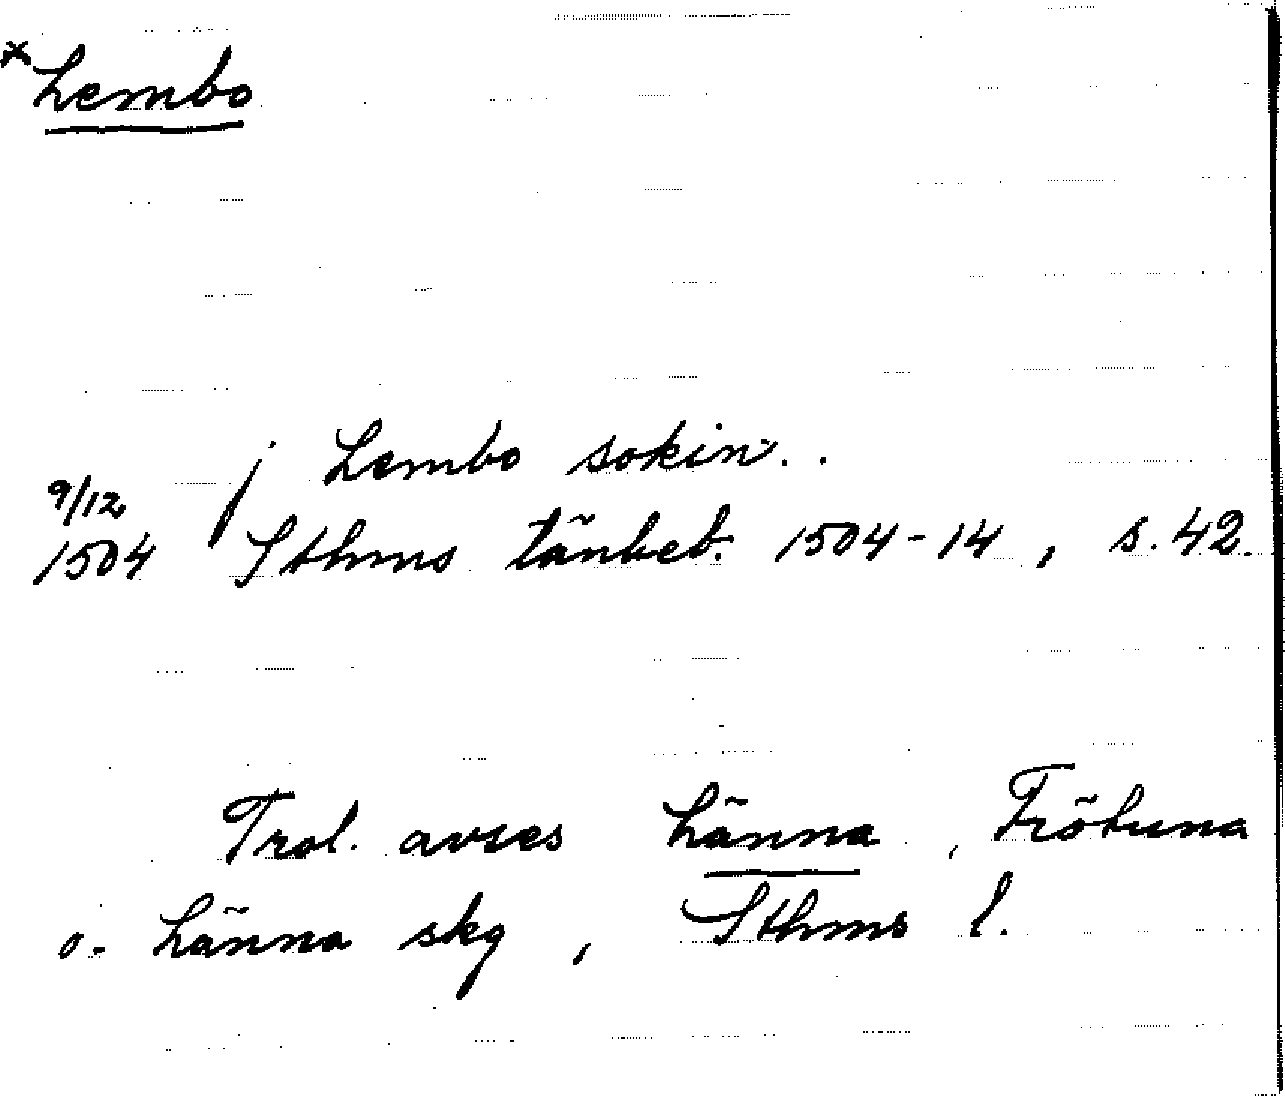 * Lembo
j Lembo sokin. .
9/12
1504 Sthms tänkeb. 1504-14, s. 42.
Trol. avses Länna, Frötuna
o. Länna skg, Sthms l.